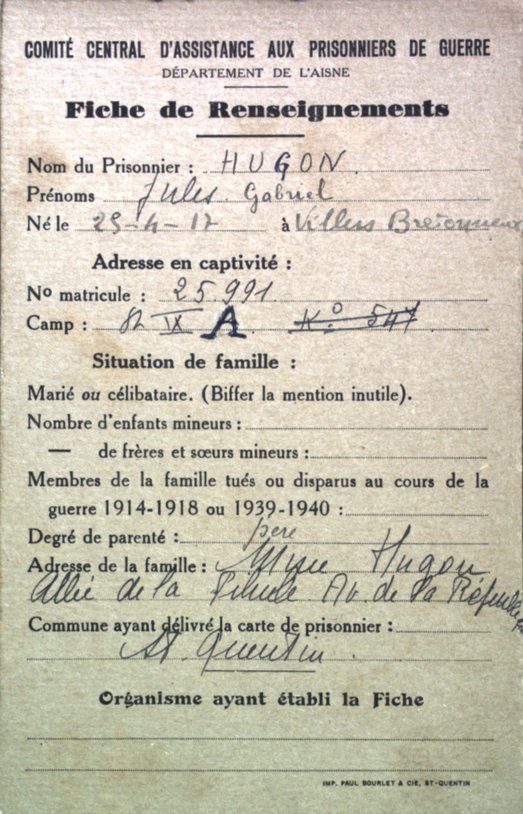 COMITÉ CENTRAL D'ASSISTANCE AUX PRISONNIERS DE GUERRE
DÉPARTEMENT DE L'AISNE
Fiche de Renseignements
Nom du Prisonnier : HUGON
Prénoms Jules Gabriel
Né le 29-4-17 à Villers Bretonneux
Adresse en captivité :
No matricule : 25.991
Camp : St IX A Ko 547
Situation de famille :
Marié ou célibataire. (Biffer la mention inutile).
Nombre d'enfants mineurs :
— de frères et sœurs mineurs :
Membres de la famille tués ou disparus au cours de la
guerre 1914-1918 ou 1939-1940 :
Degré de parenté : père
Adresse de la famille : Hugon
Allée de la Filule Av. de la
Commune ayant délivré la carte de prisonnier :
St Quentin.
Organisme ayant établi la Fiche
IMP. PAUL BOURLET & CIE, ST-QUENTIN